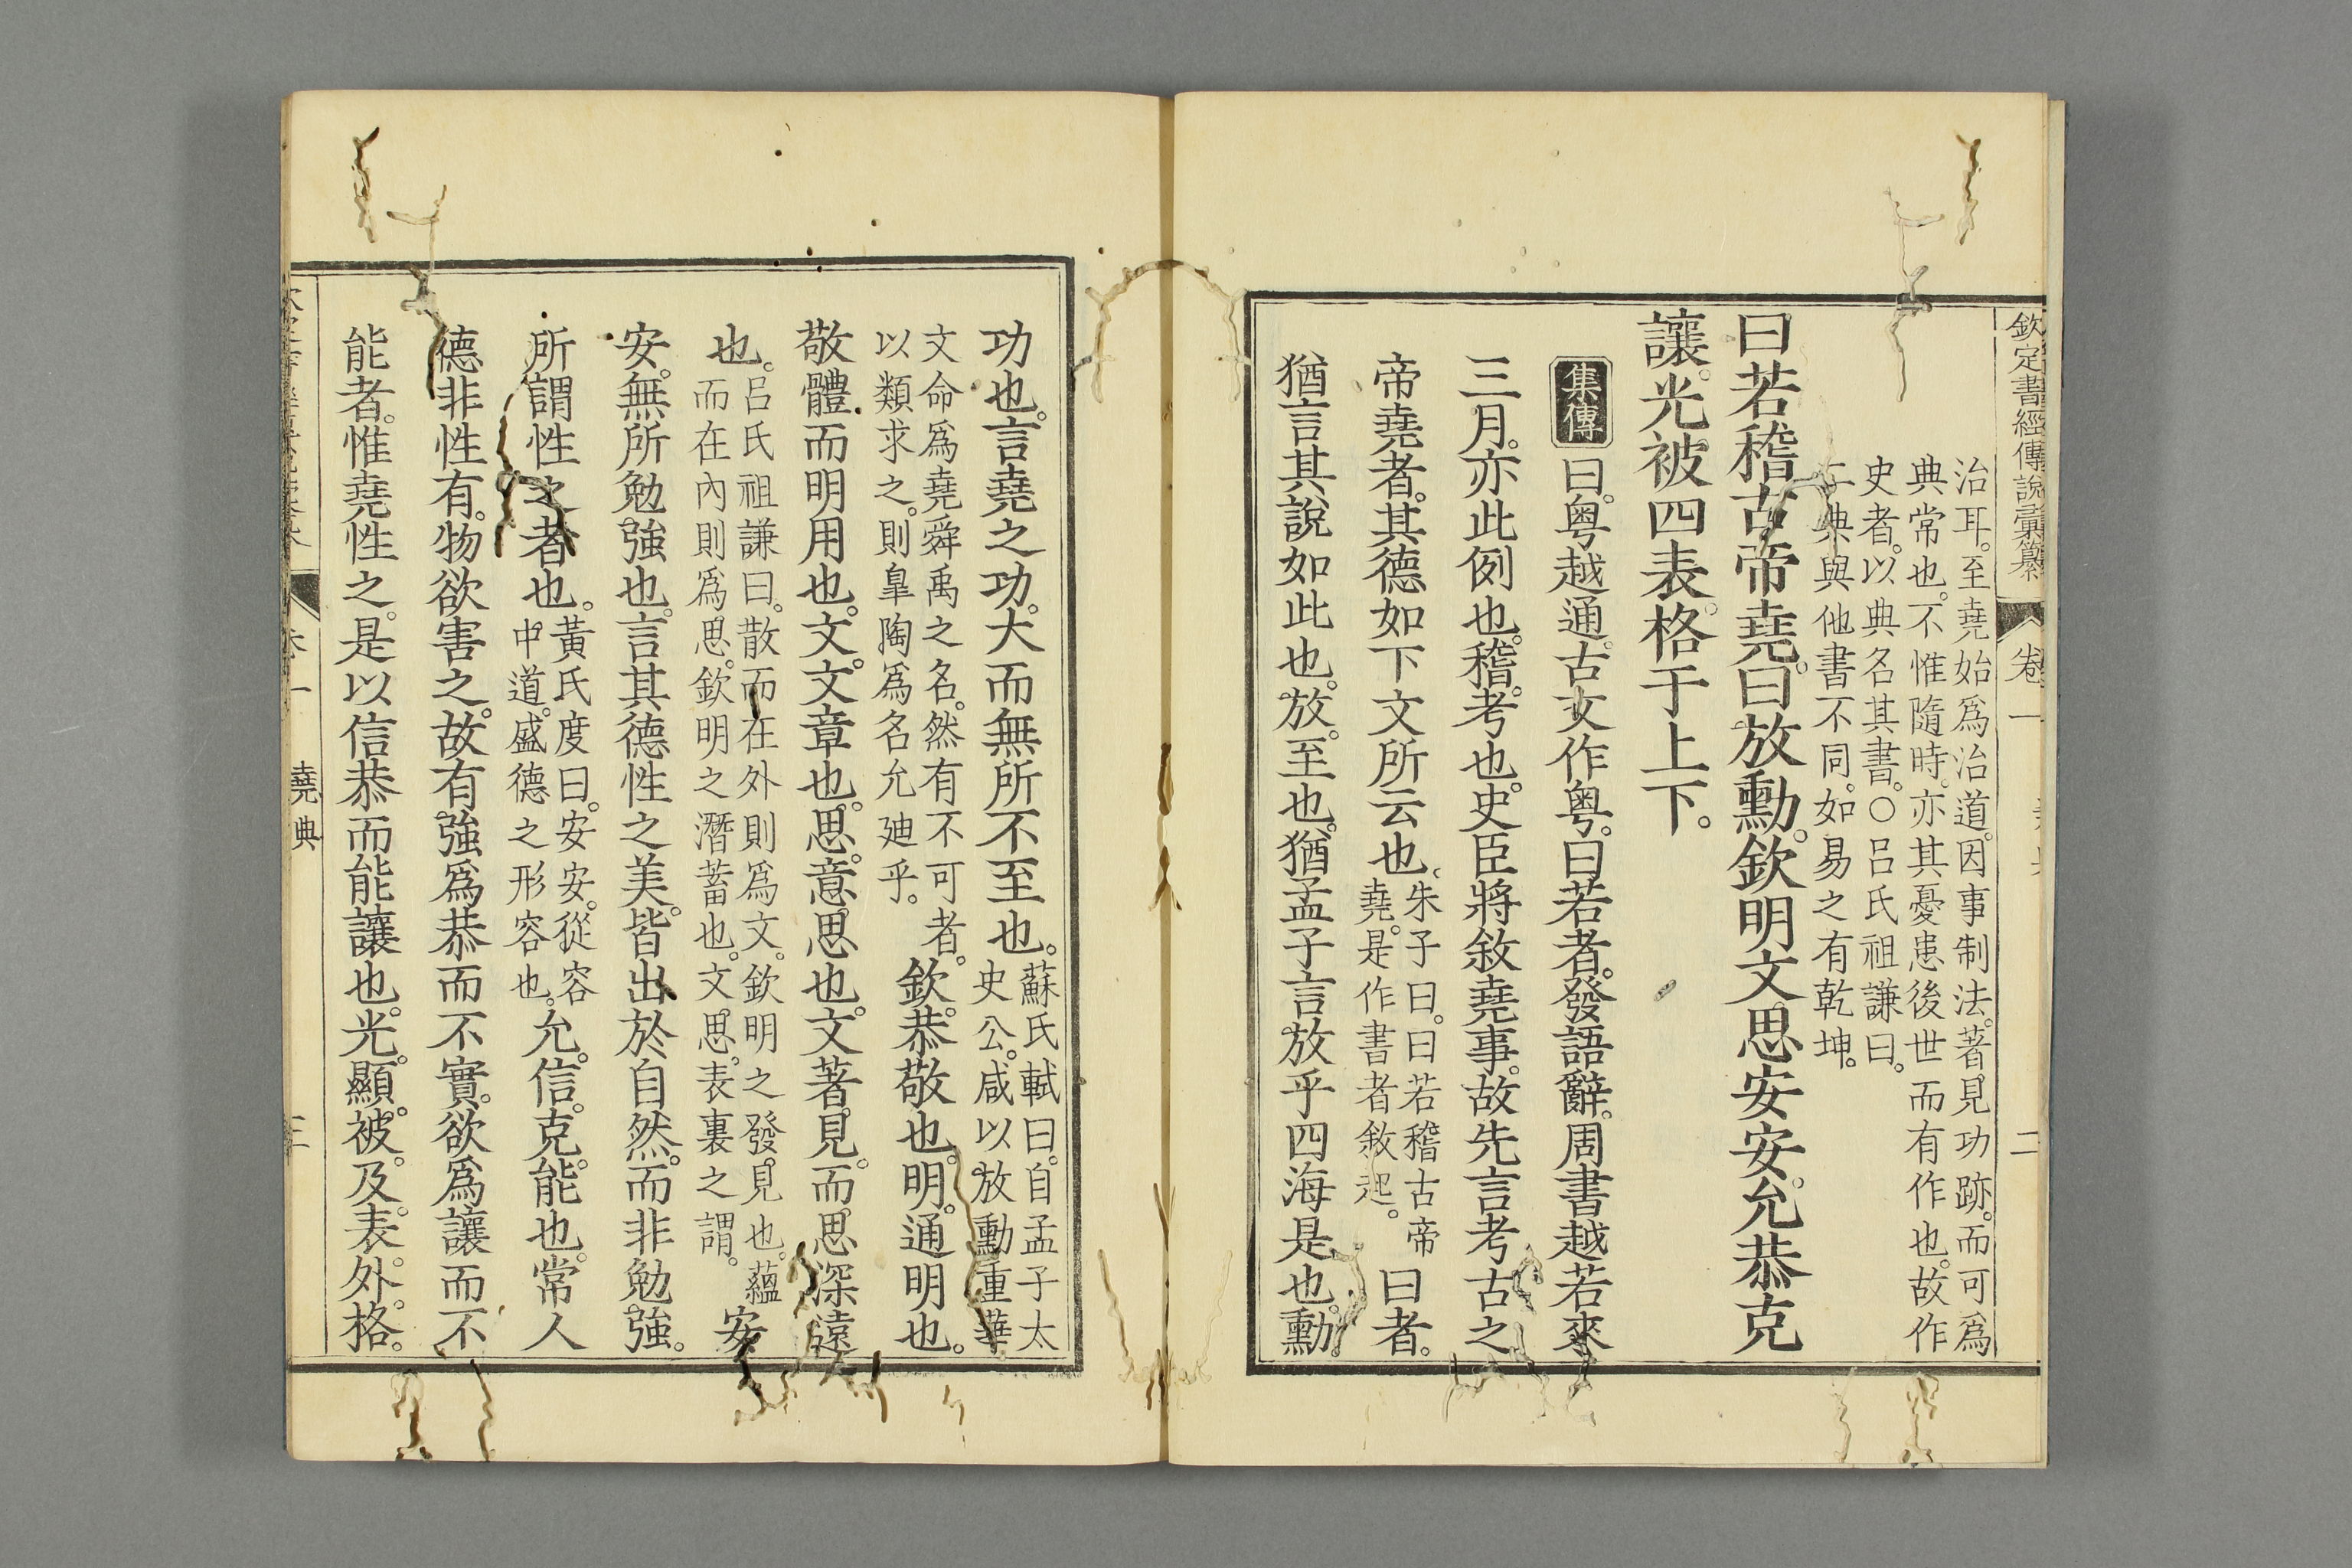 欽定書經傳說彙纂 卷一 二
治耳。至堯始爲治道。因事制法。著見功跡。而可爲
典常也。不惟隨時。亦其憂患後世而有作也。故作
史者。以典名其書。○呂氏祖謙曰。
二典與他書不同。如易之有乾坤。
曰若稽古帝堯。曰放勳。欽明文思安安。允恭克
讓。光被四表。格于上下。
集傳 曰。粤越通。古文作粤。曰若者。發語辭。周書越若來
三月。亦此例也。稽。考也。史臣將敘堯事。故先言考古之
帝堯者。其德如下文所云也。
朱子曰。曰若稽古帝
堯。是作書者敘起。
曰者。
猶言其說如此也。放。至也。猶孟子言放乎四海是也。勳。
功也。言堯之功。大而無所不至也。
蘇氏軾曰。自孟子太
史公。咸以放勳重華
文命爲堯舜禹之名。然有不可者。
以類求之。則皐陶爲名允廸乎。
欽。恭敬也。明。通明也。
敬體而明用也。文。文章也。思。意思也。文著見而思深遠
也。
呂氏祖謙曰。散而在外則爲文。欽明之發見也。蘊
而在內則爲思。欽明之潛蓄也。文思。表裏之謂。
安
安。無所勉強也。言其德性之美。皆出於自然。而非勉強。
所謂性之者也。
黃氏度曰。安安。從容
中道。盛德之形容也。
允。信。克。能也。常人
德非性有。物欲害之。故有強爲恭而不實。欲爲讓而不
能者。惟堯性之。是以信恭而能讓也。光。顯。被。及。表。外。格。
卷一 堯典 三